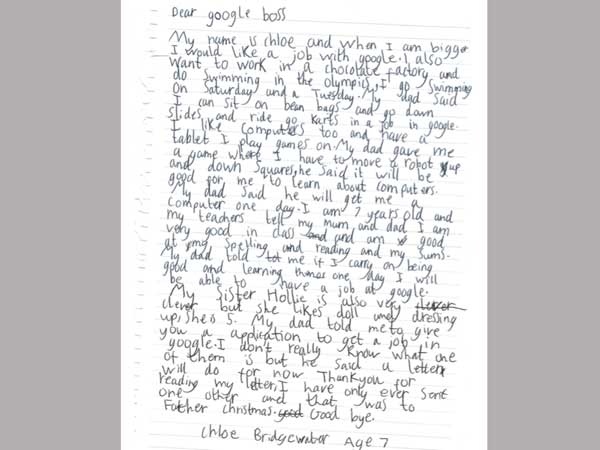 Dear google boss
My name is chloe and when I am bigger
I would like a job with google. I also
want to work in a chocolate factory and
do swimming in the olympics, I go swimming
on Saturday and a Tuesday. My dad said
I can sit on bean bags and go down
slides and ride go karts in a job in google.
I like computers too and have a
tablet I play games on. My dad gave me
a game where I have to move a robot up
and down squares, he said it will be
good for me to learn about computers.
My dad said he will get me a
computer one day. I am 7 years old and
my teachers tell my mum and dad I am
very good in class and am good
at my spelling and reading and my sums.
My dad told me if I carry on being
good and learning one day I will
be able to have a job at google.
My sister Hollie is also very
clever but she likes doll and dressing
up, shes 5. My dad told me to give
you a application to get a job in
google. I don't really know what one
of them is but he said a letter
will do for now Thankyou for
reading my letter, I have only ever sent
one other and that was to
Father christmas. Good bye.
Chloe Bridgewater Age 7